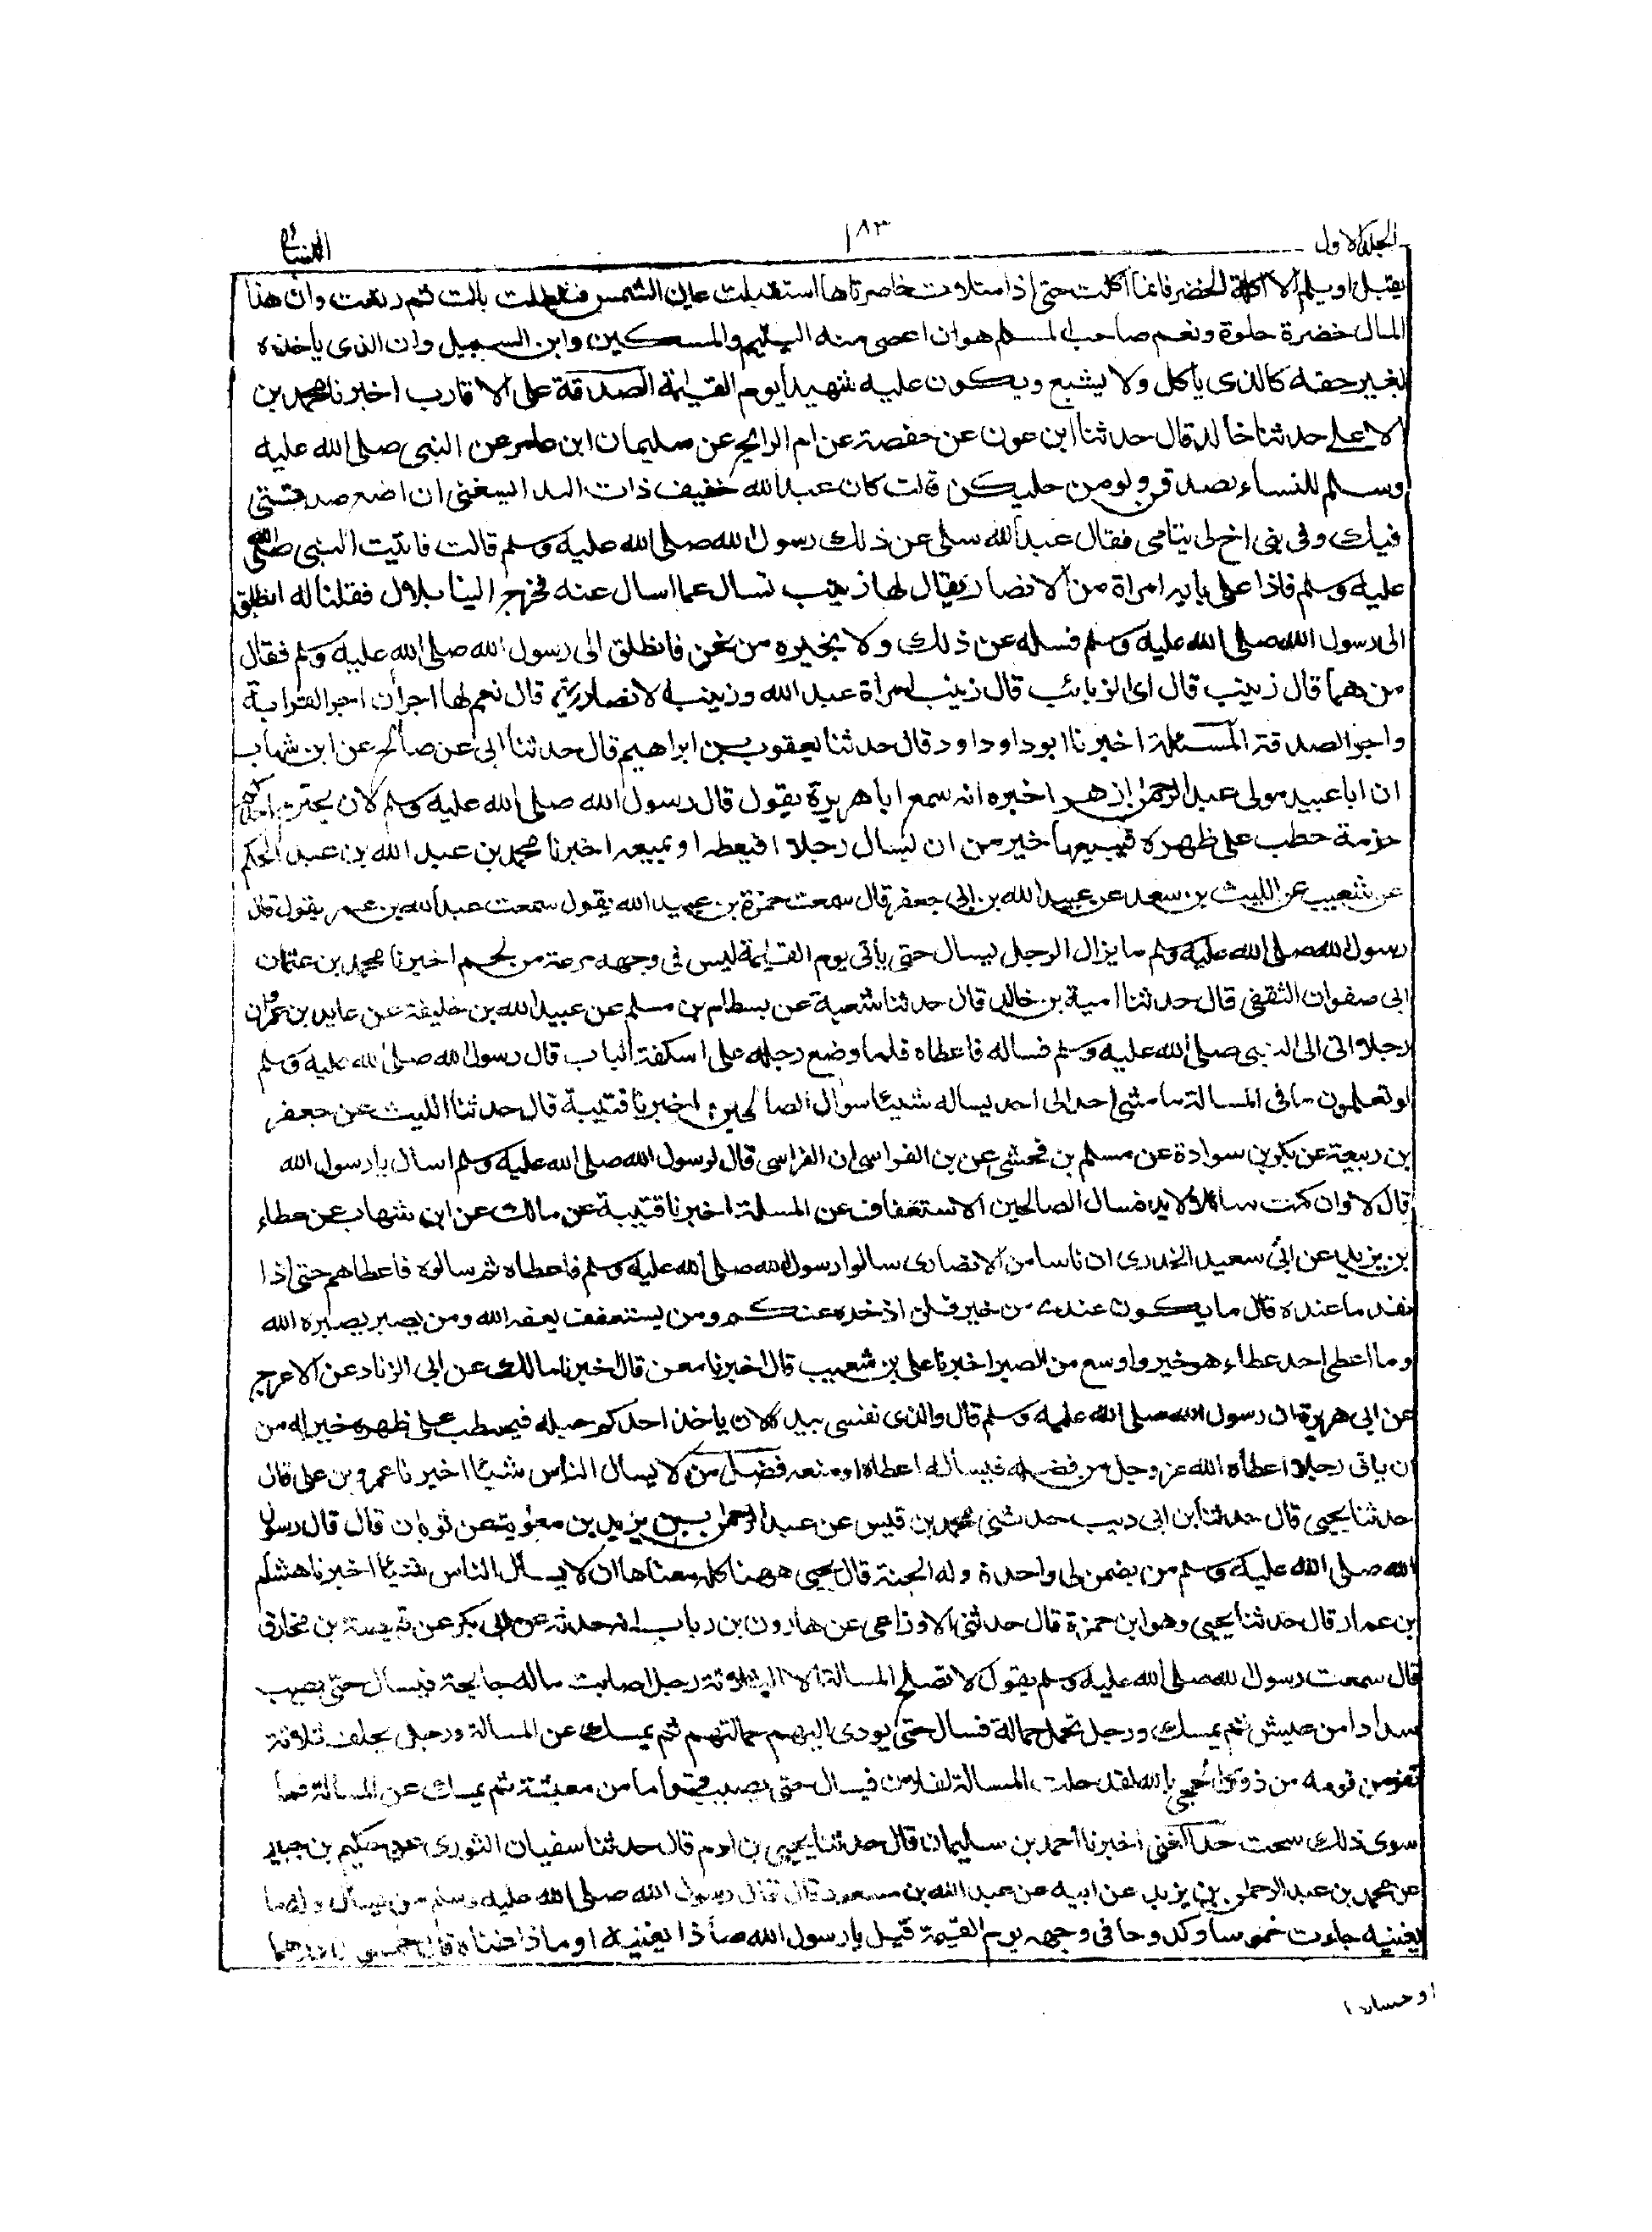 الجلد الاول ١٨٣ النسائي
يقتل او يلم الا اكلة الخضر فانما اكلت حتى اذا امتلات خاصرتاها استقبلت عين الشمس فثلطت بالت ثم رتعت وان هذا
المال خضرة حلوة ونعم صاحب المسلم هو ان اعطى منه اليتيم والمسكين وابن السبيل وان الذى ياخذه
بغير حقه كالذى ياكل ولا يشبع ويكون عليه شهيدا يوم القيمة الصدقة على الاقارب اخبرنا محمد بن
الاعلى حدثنا خالد قال حدثنا ابن عون عن حفصة عن ام الرايح عن سليمان ابن عامر عن النبى صلى الله عليه
وسلم للنساء تصدقن ولو من حليكن قالت كان عبد الله خفيف ذات اليد ايسعنى ان اضع صدقتى
فيك وفى بنى اخ لى يتامى فقال عبد الله سلى عن ذلك رسول الله صلى الله عليه وسلم قالت فاتيت النبى صلى الله
عليه وسلم فاذا على بابه امراة من الانصار يقال لها زينب تسال عما اسال عنه فخرج الينا بلال فقلنا له انطلق
الى رسول الله صلى الله عليه وسلم فسله عن ذلك ولا تخبره من نحن فانطلق الى رسول الله صلى الله عليه وسلم فقال
من هما قال زينب قال اى الزيانب قال زينب امراة عبد الله وزينب الانصارية قال نعم لها اجران اجر القرابة
واجر الصدقة المسئلة اخبرنا ابو داود اود قال حدثنا يعقوب بن ابراهيم قال حدثنا ابى عن صالح عن ابن شهاب
ان ابا عبيد مولى عبد الرحمن ازهر اخبره انه سمع ابا هريرة يقول قال رسول الله صلى الله عليه وسلم لان يحتزم احدكم
حزمة حطب على ظهره فيبيعها خير من ان يسال رجلا فيعطه او يمنعه اخبرنا محمد بن عبد الله بن عبد الحكم
عن شعيب عن الليث بن سعد عن عبيد الله بن ابى جعفر قال سمعت حمزة بن عبيد الله يقول سمعت عبد الله بن عمر يقول قال
رسول الله صلى الله عليه وسلم ما يزال الرجل يسال حتى ياتى يوم القيمة ليس فى وجهه مزعة من لحم اخبرنا محمد بن عثمان
ابى صفوان الثقفى قال حدثنا امية بن خالد قال حدثنا شعبة عن بسطام بن مسلم عن عبيد الله بن خليفة عن عايد بن عمرو ان
رجلا اتى الى النبى صلى الله عليه وسلم فساله فاعطاه فلما وضع رجله على اسكفة الباب قال رسول الله صلى الله عليه وسلم
لو تعلمون ما فى المسالة ما مشى احد الى احد يساله شيئا سوال الصالحين اخبرنا قتيبة قال حدثنا الليث عن جعفر
بن ربيعة عن بكر بن سوادة عن مسلم بن مخشى عن بن الفراسى ان الفراسى قال لرسول الله صلى الله عليه وسلم اسال يا رسول الله
قال لا وان كنت سائلا لابد فسال الصالحين الاستعفاف عن المسلة اخبرنا قتيبة عن مالك عن ابن شهاب عن عطاء
بن يزيد عن ابى سعيد الخدرى ان ناسا من الانصارى سالوا رسول الله صلى الله عليه وسلم فاعطاه ثم سالوه فاعطاهم حتى اذا
نفد ما عنده قال ما يكون عندى من خير فلن اذخره عنكم ومن يستعفف يعفه الله ومن يصبر يصبره الله
وما اعطى احد عطاء هو خير واوسع من الصبر اخبرنا على بن شعيب قال اخبرنا معن قال اخبرنا مالك عن ابى الزناد عن الاعرج
عن ابى هريرة ان رسول الله صلى الله عليه وسلم قال والذى نفسى بيده لان ياخذ احدكم حبله فيحتطب على ظهره خير له من
ان ياتى رجلا اعطاه الله عز وجل من فضله فيساله اعطاه او منعه فضل من لا يسال الناس شيئا اخبرنا عمرو بن على قال
حدثنا يحيى قال حدثنا ابن ابى ذيب حدثنى محمد بن قيس عن عبد الرحمن بن يزيد بن معوية عن ثوبان قال قال رسول
الله صلى الله عليه وسلم من يضمن لى واحدة وله الجنة قال يحيى ههنا كلمة معناها ان لا يسأل الناس شيئا اخبرنا هشام
بن عمار قال حدثنا يحيى وهو ابن حمزة قال حدثنى الاوزاعى عن هارون بن رياب انه حدثه عن ابى بكر عن قبيصة بن مخارق
قال سمعت رسول الله صلى الله عليه وسلم يقول لا تصلح المسالة الا لثلاثة رجل اصابت ماله جايحة فيسال حتى يصيب
سدادا من عيش ثم يمسك ورجل تحمل حمالة فسال حتى يودى اليهم حمالتهم ثم يمسك عن المسالة ورجل يحلف ثلاثة
نفر من قومه من ذوى الحجى بالله لقد حلت المسالة لفلان فيسال حتى يصيب قواما من معيشة ثم يمسك عن المسالة فما
سوى ذلك سحت حد الغنى اخبرنا احمد بن سليمان قال حدثنا يحيى بن ادم قال حدثنا سفيان الثورى عن حكيم بن جبير
عن محمد بن عبد الرحمن بن يزيد عن ابيه عن عبد الله بن مسعود قال قال رسول الله صلى الله عليه وسلم من يسال وله ما
يغنيه جاءت خموسا او كدوحا فى وجهه يوم القيمة قيل يا رسول الله ماذا يغنيه او ماذا غناه قال خمسون درهما
او حسابها